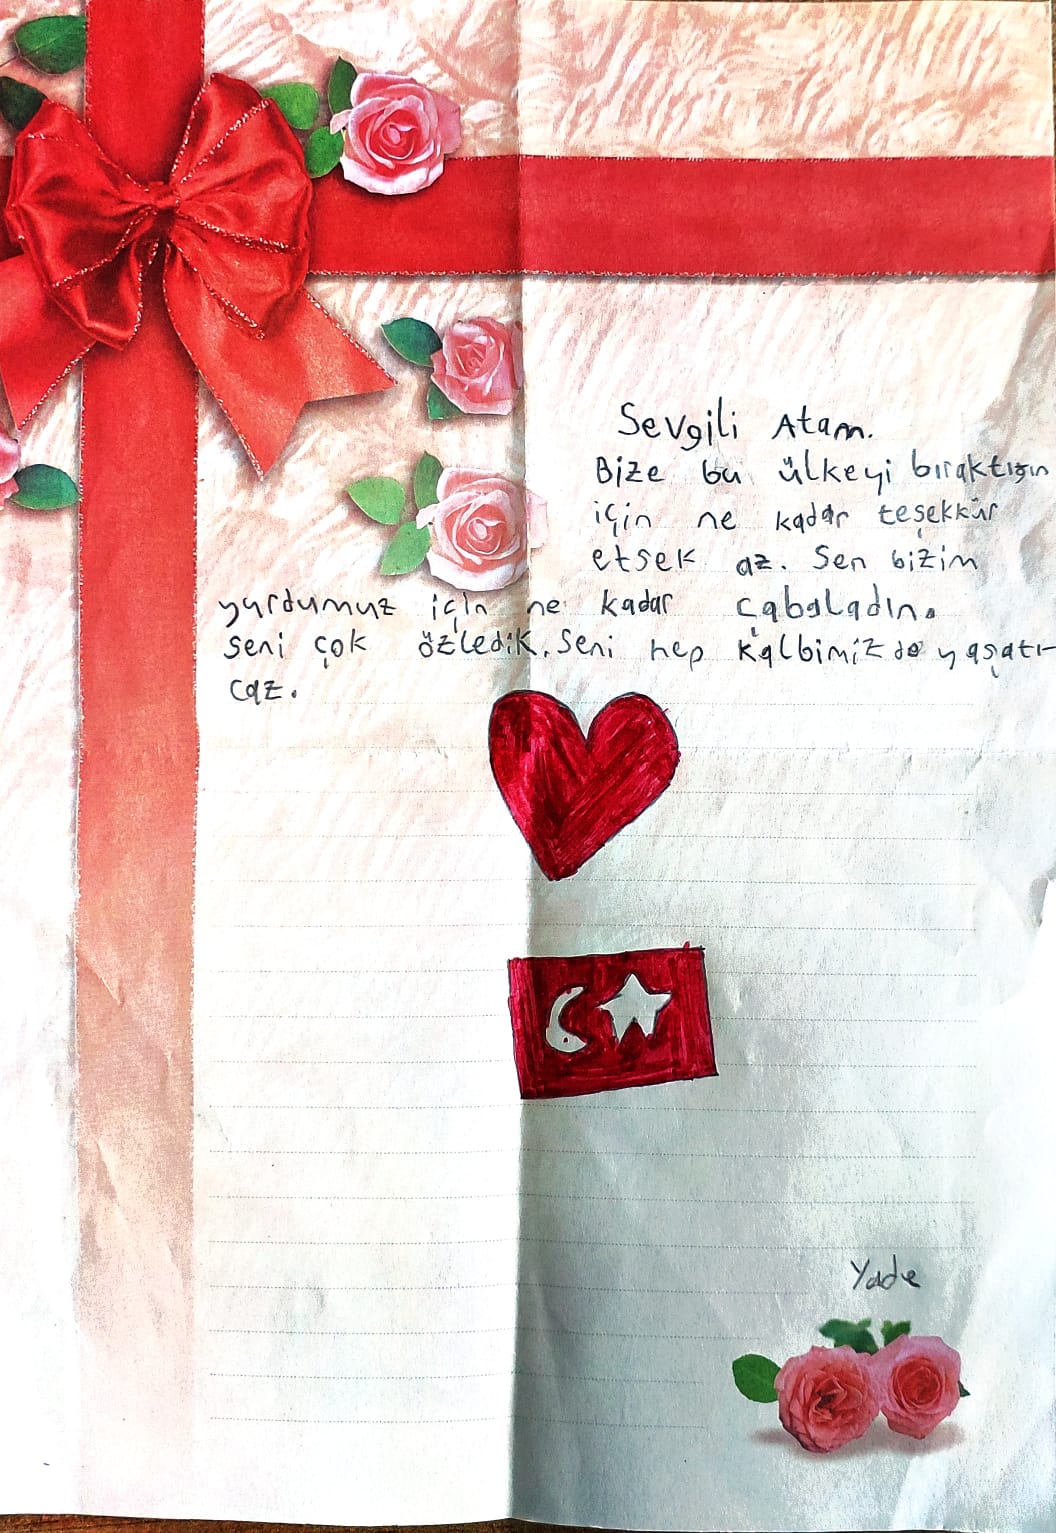 Sevgili Atam.
Bize bu ülkeyi bıraktığın
için ne kadar teşekkür
etsek az. Sen bizim
yurdumuz için ne kadar çabaladın.
Seni çok özledik. Seni hep kalbimizde yaşatı-
caz.
Yade